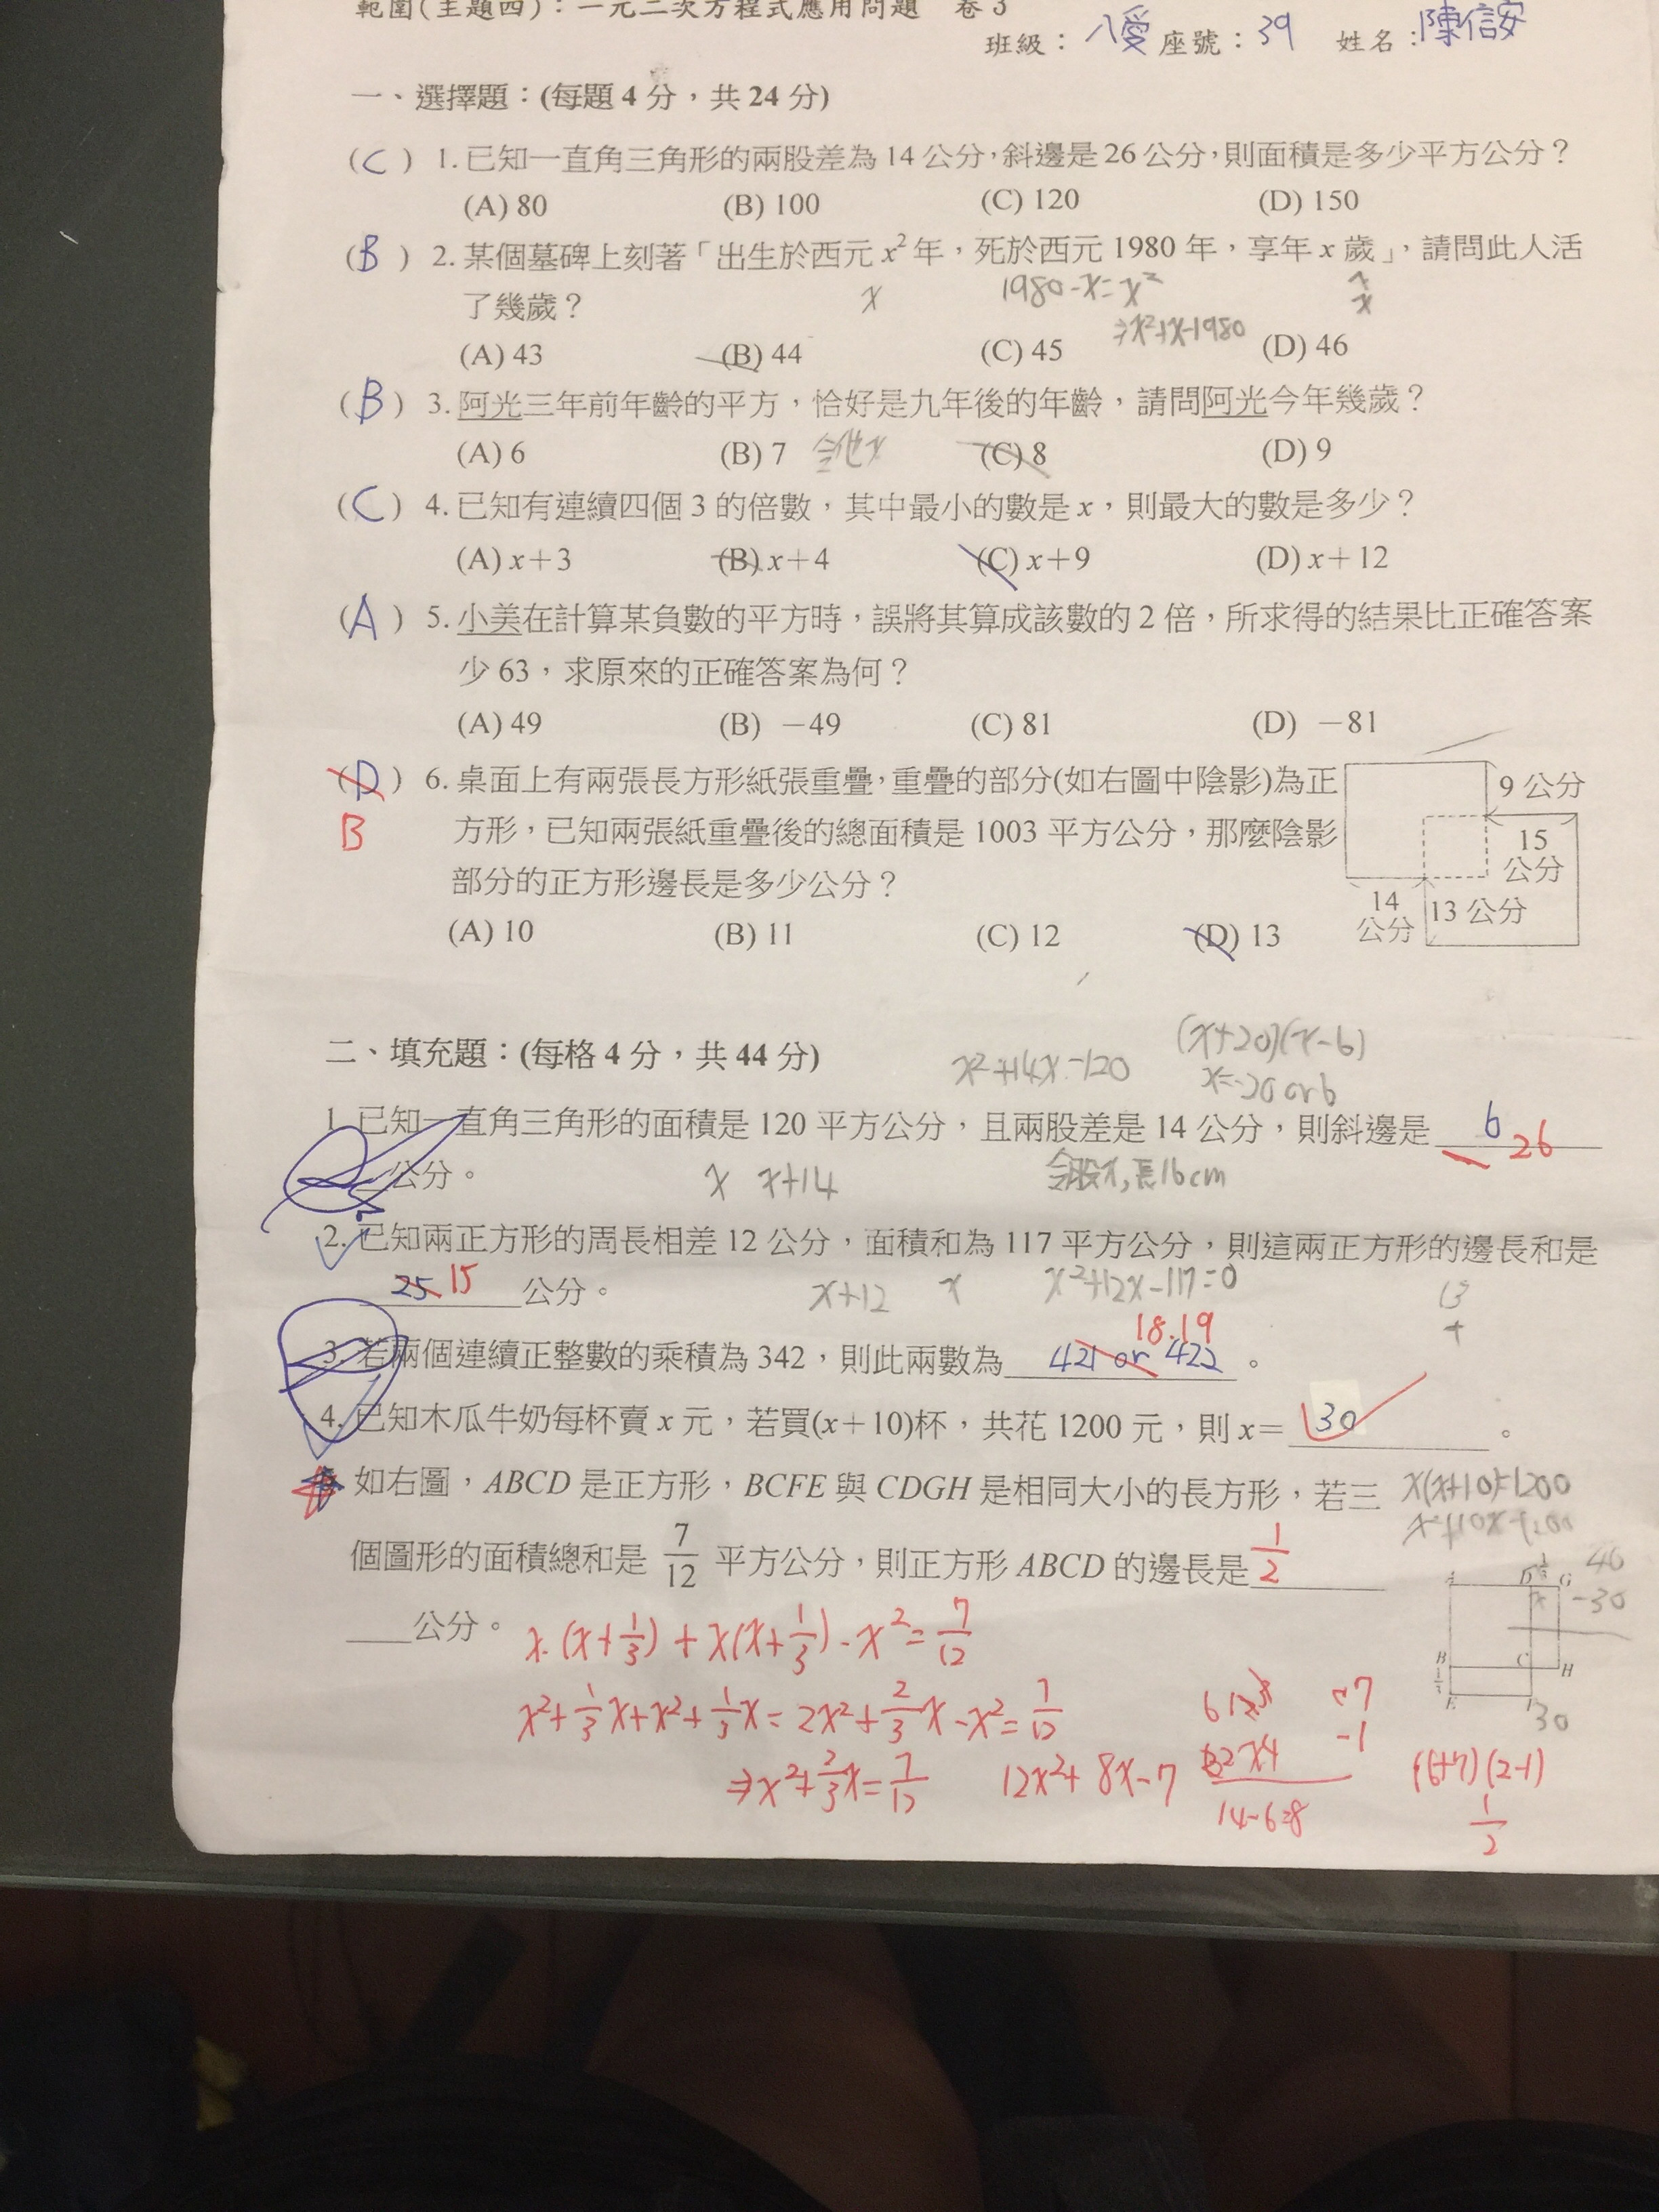 範圍(主題四)：一元二次方程式應用問題 卷3
班級：八愛 座號：39 姓名：陳信安
一、選擇題：(每題4分，共24分)
(C) 1. 已知一直角三角形的兩股差為14公分，斜邊是26公分，則面積是多少平方公分？
(A) 80 (B) 100 (C) 120 (D) 150
(B) 2. 某個墓碑上刻著「出生於西元x²年，死於西元1980年，享年x歲」，請問此人活
了幾歲？ x 1980-x=x²
⇒x²+x-1980
(A) 43 (B) 44 (C) 45 (D) 46
(B) 3. 阿光三年前年齡的平方，恰好是九年後的年齡，請問阿光今年幾歲？
(A) 6 (B) 7 令他x (C) 8 (D) 9
(C) 4. 已知有連續四個3的倍數，其中最小的數是x，則最大的數是多少？
(A) x+3 (B) x+4 (C) x+9 (D) x+12
(A) 5. 小美在計算某負數的平方時，誤將其算成該數的2倍，所求得的結果比正確答案
少63，求原來的正確答案為何？
(A) 49 (B) -49 (C) 81 (D) -81
(D) 6. 桌面上有兩張長方形紙張重疊，重疊的部分(如右圖中陰影)為正
B 方形，已知兩張紙重疊後的總面積是1003平方公分，那麼陰影
部分的正方形邊長是多少公分？
(A) 10 (B) 11 (C) 12 (D) 13
9公分
15
公分
14
公分
13公分
二、填充題：(每格4分，共44分)
x²+14x-120 (x+20)(x-6)
x=-20 or 6
1. 已知一直角三角形的面積是120平方公分，且兩股差是14公分，則斜邊是 6 26
公分。 x x+14 令股x,長16cm
2. 已知兩正方形的周長相差12公分，面積和為117平方公分，則這兩正方形的邊長和是
25 15 公分。 x+12 x x²+12x-117=0
18.19
3. 若兩個連續正整數的乘積為342，則此兩數為 421 or 422 。
4. 已知木瓜牛奶每杯賣x元，若買(x+10)杯，共花1200元，則x= 30 。
如右圖，ABCD是正方形，BCFE與CDGH是相同大小的長方形，若三
x(x+10)=1200
個圖形的面積總和是 7/12 平方公分，則正方形ABCD的邊長是 1/2
公分。
40
-30
30
A D G
B C H
E
1/3
x·(x+1/3)+x(x+1/3)-x²=7/12
x²+1/3x+x²+1/3x=2x²+2/3x-x²=7/12
⇒x²+2/3x=7/12 12x²+8x-7
14-6=8
(6+7)(2-1)
1/2